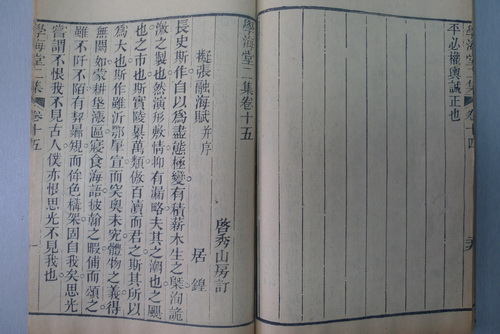 學海堂二集 卷十四
平必權輿誠正也
學海堂二集卷十五
啓秀山房訂
擬張融海賦 并序
居鍠
長史斯作自以爲盡態極變有積薪木生之
激之製也然演形敷情抑有漏略夫其之潮也之颶
也之市也斯實陵暴萬類倣百瀆而君之斯其所以
爲大也斯作雖沂鄂畢宣而突奧未究體物之義得
無闕如蒙耕垡漲區寢食海語披翰之暇俌而頌之
雖不阡不陌有契曩規而侔色橅架固自我矣思光
嘗謂不恨我不見古人僕亦恨思光不見我也
學海堂二集 卷十五 一